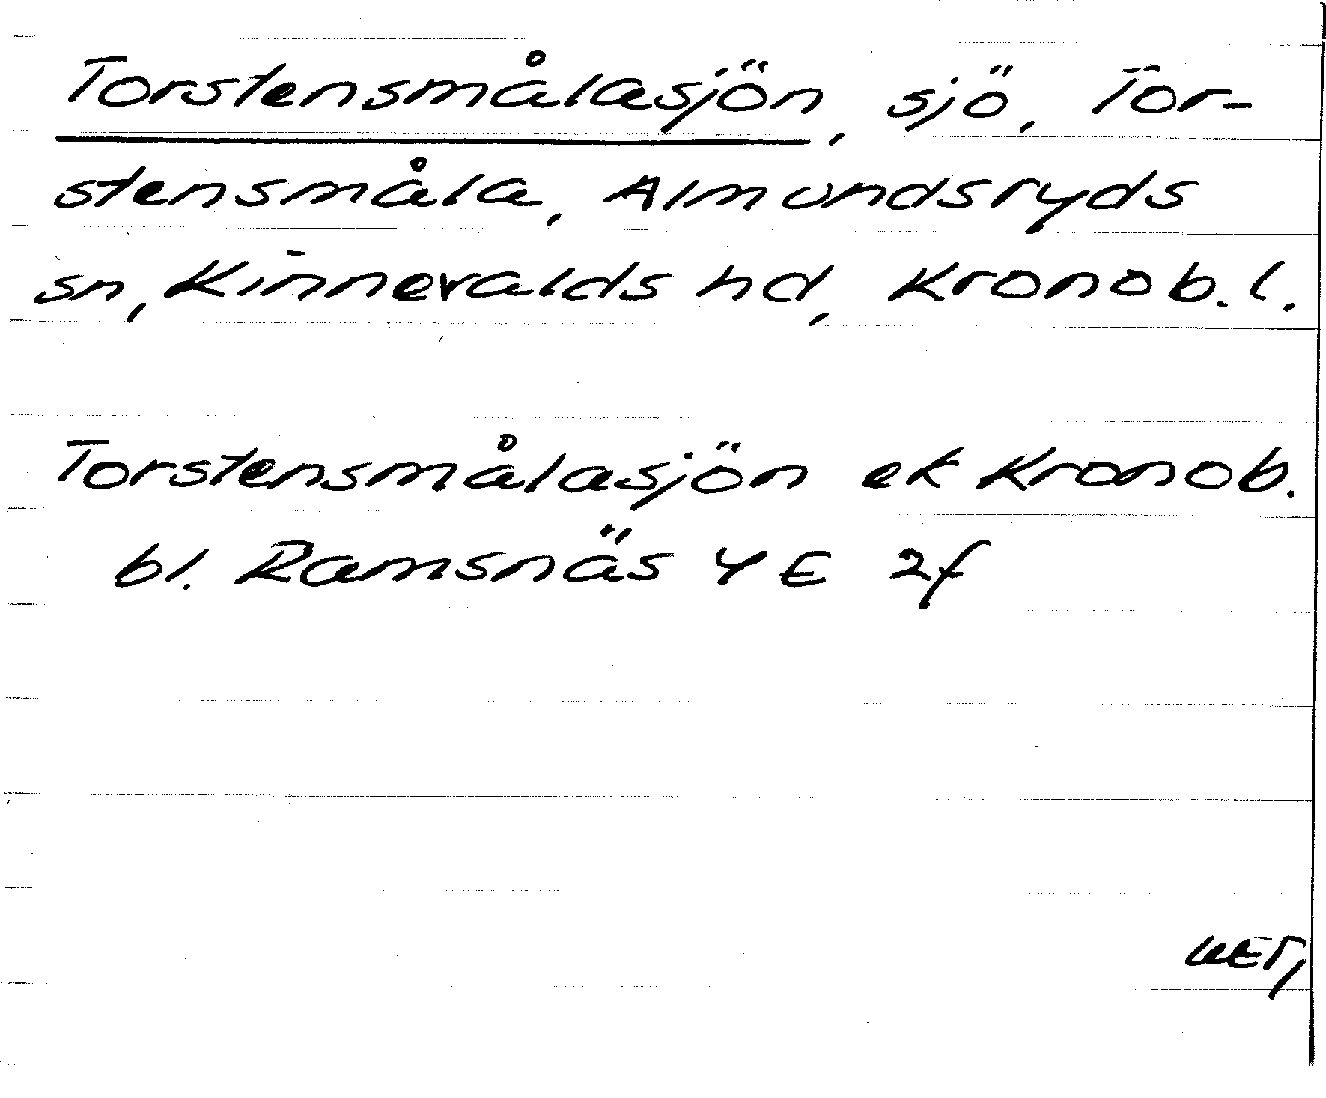 Torstensmålasjön, sjö, Tor-
stensmåla, Almundsryds
sn, Kinnevalds hd, Kronob. l.
Torstensmålasjön ek Kronob.
bl. Ramsnäs 4E 2f